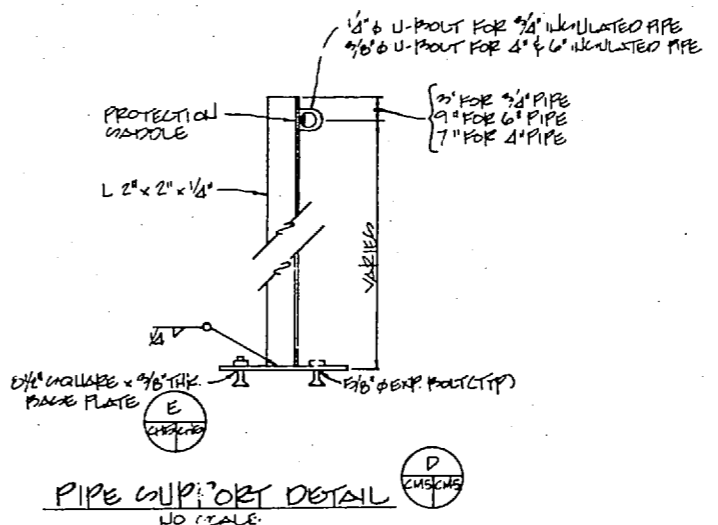 1/4" φ U-BOLT FOR 3/4" INSULATED PIPE
3/8" φ U-BOLT FOR 4" & 6" INSULATED PIPE
PROTECTION
SADDLE
3" FOR 3/4" PIPE
9" FOR 6" PIPE
7" FOR 4" PIPE
L 2" x 2" x 1/4"
VARIES
1/4
SQUARE x 3/8" THK.
BASE PLATE
5/8" φ EXP. BOLT (TYP)
E
D
CM5 CM5
PIPE SUPPORT DETAIL
NO SCALE